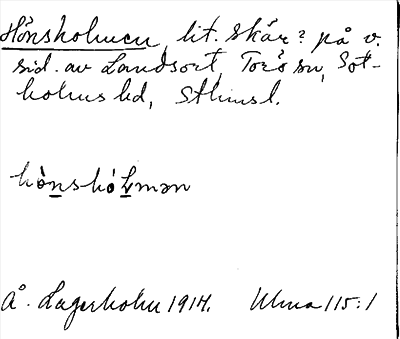 Hönsholmen, lit. skär? på v.
sid. av Landsort, Torö sn, Sot-
holms hd, Sthmsl.
hò̱nshòḻmən
Å. Lagerholm 1914. Ulma 115:1